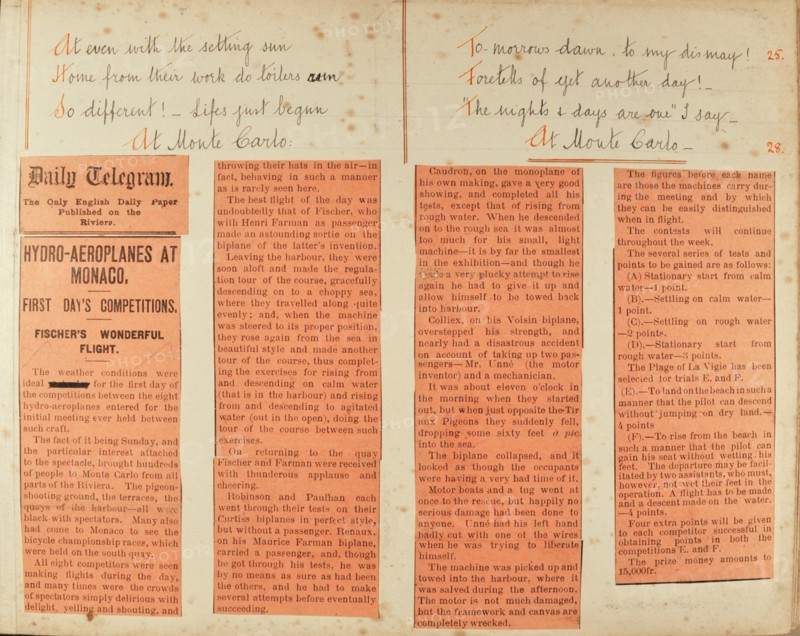 At even with the setting sun
Home from their work do toilers
So different! – Lifes just begun
At Monte Carlo:
To-morrows dawn. to my dismay! 25.
Foretells of yet another day! –
"The nights & days are one" I say –
At Monte Carlo – 28.
Daily Telegram.
The Only English Daily Paper
Published on the
Riviera.
HYDRO-AEROPLANES AT
MONACO.
FIRST DAY'S COMPETITIONS.
FISCHER'S WONDERFUL
FLIGHT.
The weather conditions were
ideal for the first day of
the competitions between the eight
hydro-aeroplanes entered for the
initial meeting ever held between
such craft.
The fact of it being Sunday, and
the particular interest attached
to the spectacle, brought hundreds
of people to Monte Carlo from all
parts of the Riviera. The pigeon-
shooting ground, the terraces, the
quays of the harbour—all were
black with spectators. Many also
had come to Monaco to see the
bicycle championship races, which
were held on the south quay.
All eight competitors were seen
making flights during the day,
and many times were the crowds
of spectators simply delirious with
delight, yelling and shouting, and
throwing their hats in the air—in
fact, behaving in such a manner
as is rarely seen here.
The best flight of the day was
undoubtedly that of Fischer, who
with Henri Farman as passenger
made an astounding sortie on the
biplane of the latter's invention.
Leaving the harbour, they were
soon aloft and made the regula-
tion tour of the course, gracefully
descending on to a choppy sea,
where they travelled along quite
evenly; and, when the machine
was steered to its proper position,
they rose again from the sea in
beautiful style and made another
tour of the course, thus complet-
ing the exercises for rising from
and descending on calm water
(that is in the harbour) and rising
from and descending to agitated
water (out in the open), doing the
tour of the course between such
exercises.
On returning to the quay
Fischer and Farman were received
with thunderous applause and
cheering.
Robinson and Paulhan each
went through their tests on their
Curtiss biplanes in perfect style,
but without a passenger. Renaux,
on his Maurice Farman biplane,
carried a passenger, and, though
he got through his tests, he was
by no means as sure as had been
the others, and he had to make
several attempts before eventually
succeeding.
Caudron, on the monoplane of
his own making, gave a very good
showing, and completed all his
tests, except that of rising from
rough water. When he descended
on to the rough sea it was almost
too much for his small, light
machine—it is by far the smallest
in the exhibition—and though he
a very plucky attempt to rise
again he had to give it up and
allow himself to be towed back
into harbour.
Colliex, on his Voisin biplane,
overstepped his strength, and
nearly had a disastrous accident
on account of taking up two pas-
sengers—Mr. Unné (the motor
inventor) and a mechanician.
It was about eleven o'clock in
the morning when they started
out, but when just opposite the Tir
aux Pigeons they suddenly fell,
dropping some sixty feet à pic
into the sea.
The biplane collapsed, and it
looked as though the occupants
were having a very bad time of it.
Motor boats and a tug went at
once to the rescue, but happily no
serious damage had been done to
anyone. Unné had his left hand
badly cut with one of the wires
when he was trying to liberate
himself.
The machine was picked up and
towed into the harbour, where it
was salved during the afternoon.
The motor is not much damaged,
but the framework and canvas are
completely wrecked.
The figures before each name
are those the machines carry dur-
ing the meeting and by which
they can be easily distinguished
when in flight.
The contests will continue
throughout the week.
The several series of tests and
points to be gained are as follows:
(A) Stationary start from calm
water—1 point.
(B).—Settling on calm water—
1 point.
(C).—Settling on rough water
—2 points.
(D).—Stationary start from
rough water—3 points.
The Plage of La Vigie has been
selected for trials E. and F.
(E).—To land on the beach in such a
manner that the pilot can descend
without jumping on dry land.—
4 points
(F).—To rise from the beach in
such a manner that the pilot can
gain his seat without wetting his
feet. The departure may be facil-
itated by two assistants, who must,
however, not wet their feet in the
operation. A flight has to be made
and a descent made on the water.
—4 points.
Four extra points will be given
to each competitor successful in
obtaining points in both the
competitions E. and F.
The prize money amounts to
15,000fr.